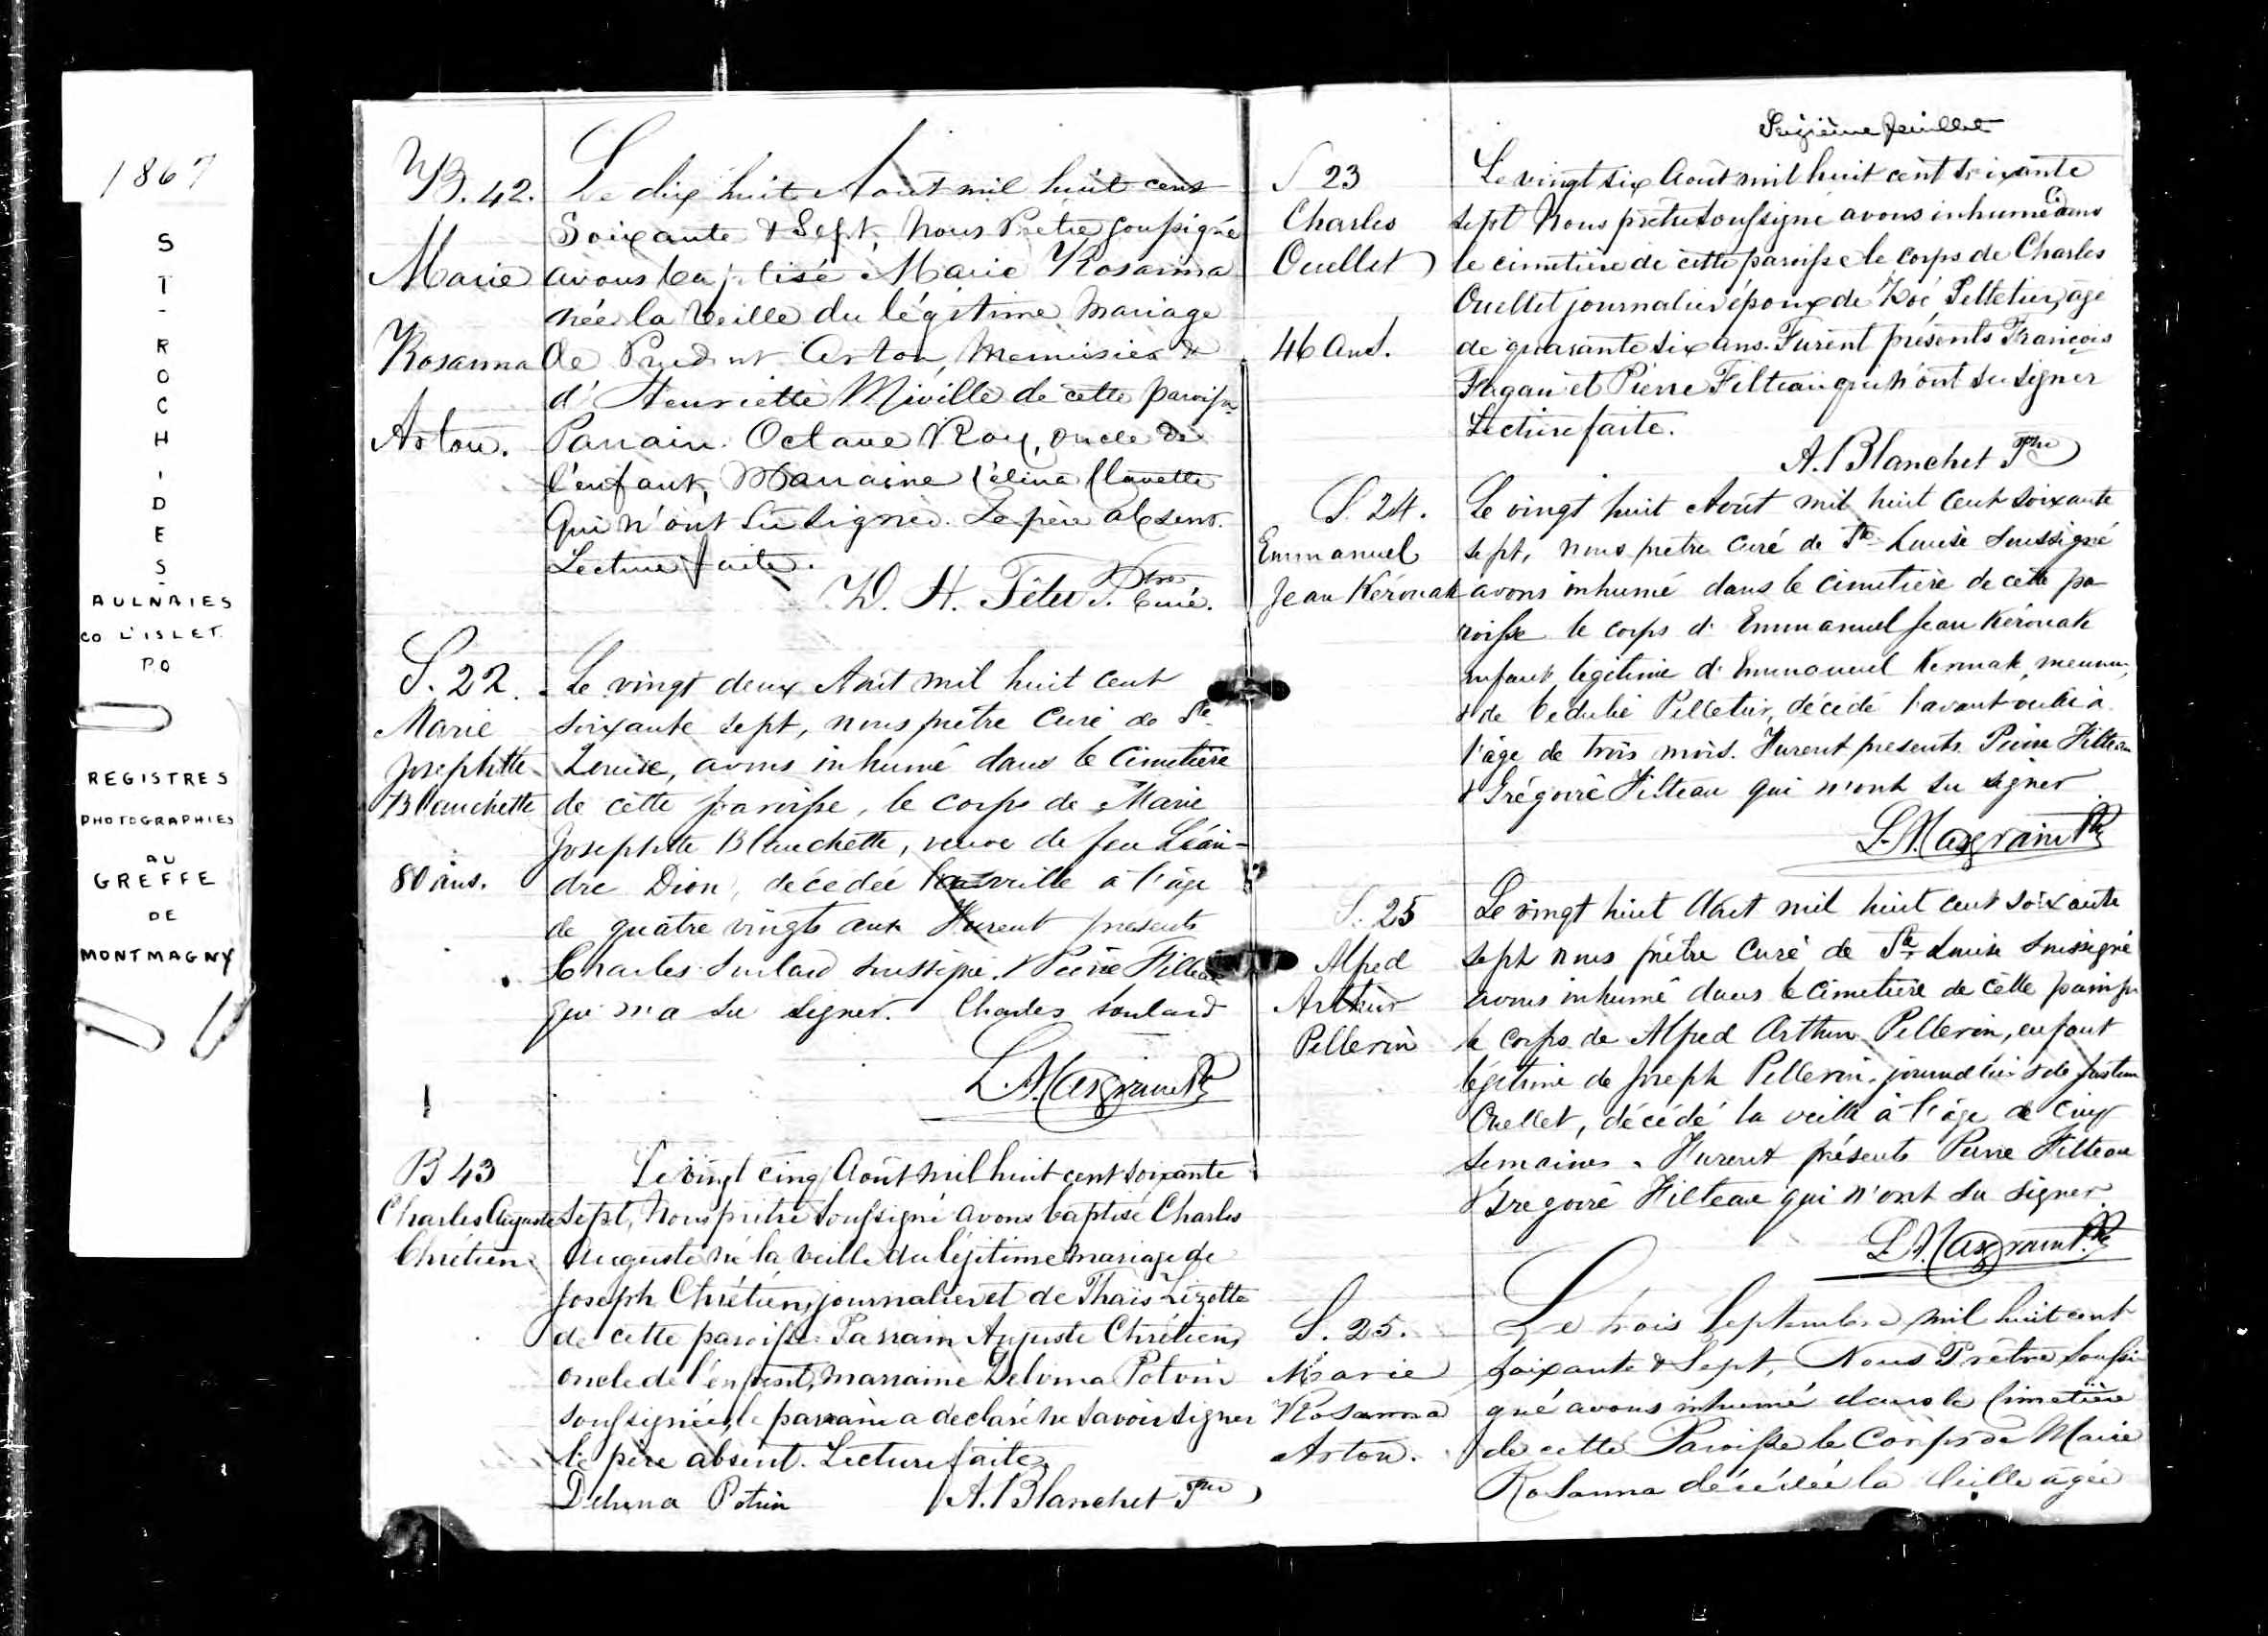 1867
ST-ROCH-DES-
AULNAIES
CO L'ISLET
P.Q
REGISTRES
PHOTOGRAPHIES
AU
GREFFE
DE
MONTMAGNY
B. 42.
Marie
Rosanna
Aston.
Le dix huit Aout mil huit cent
Soixante & Sept, Nous Prêtre soussigné
avons baptisé Marie Rosanna
née la veille du légitime mariage
de Prudent Aston, Menuisier &
d'Henriette Miville de cette paroisse
Parrain Octave Roy, oncle de
l'enfant, Marraine Célina Clavette
Qui n'ont su signer. Le père absent.
Lecture faite.
D. H. Têtu Ptre Curé.
S. 22.
Marie
Josephte
Blanchette
80 ans.
Le vingt deux Août mil huit cent
soixante sept, nous prêtre Curé de Ste
Louise, avons inhumé dans le Cimetière
de cette paroisse, le corps de Marie
Josephte Blanchette, veuve de feu Léan-
dre Dion, décédée la veille à l'âge
de quatre vingts ans Furent presents
Charles Soulard soussigné & Pierre Filteau
qui n'a su signer. Charles Soulard
L. A. Casgrain Ptr
B 43
Charles Auguste
Chrétien
Le vingt cinq Août mil huit cent soixante
sept, Nous prêtre soussigné avons baptisé Charles
Auguste né la veille du légitime mariage de
Joseph Chrétien, journalier et de Thaïs Lizotte
de cette paroisse. Parrain Auguste Chrétien,
oncle de l'enfant, marraine Delvina Potvin
soussignée, le parrain a declaré ne savoir signer
le père absent. Lecture faite.
Delvina Potvin A. Blanchet Ptre
Seizième feuillet
S 23
Charles
Ouellet
46 ans.
Le vingt six Août mil huit cent soixante
sept Nous prêtre soussigné avons inhumé dans
le cimetière de cette paroisse le corps de Charles
Ouellet journalier époux de Zoé Pelletier, âgé
de quarante six ans. Furent présents François
Fagan et Pierre Filteau qui n'ont su signer
Lecture faite.
A. Blanchet Ptre
S. 24.
Emmanuel
Jean Kérouak
Le vingt huit Août mil huit cent soixante
sept, nous prêtre curé de Ste Louise Soussigné
avons inhumé dans le cimetière de cette pa-
roisse le corps d'Emmanuel Jean Kérouak
enfant légitime d'Emmanuel Kerouak,
& de Pelletier, décédé l'avant veille à
l'âge de trois mois. Furent presents Pierre Filteau
& Grégoire Filteau qui n'ont su signer
L. A. Casgrain Ptr
S. 25
Alfred
Arthur
Pellerin
Le vingt huit Août mil huit cent soixante
sept nous prêtre Curé de Ste Louise Soussigné
avons inhumé dans le cimetière de cette paroisse
le corps de Alfred Arthur Pellerin, enfant
légitime de Joseph Pellerin, journalier & de
Ouellet, décédé la veille à l'âge de cinq
semaines. Furent présents Pierre Filteau
& Gregoire Filteau qui n'ont su signer
L. A. Casgrain Ptr
S. 25.
Marie
Rosanna
Aston.
Le trois Septembre mil huit cent
soixante & Sept, Nous Prêtre soussi
gné avons inhumé dans le Cimetière
de cette Paroisse le Corps de Marie
Rosanna décédée la Veille agée